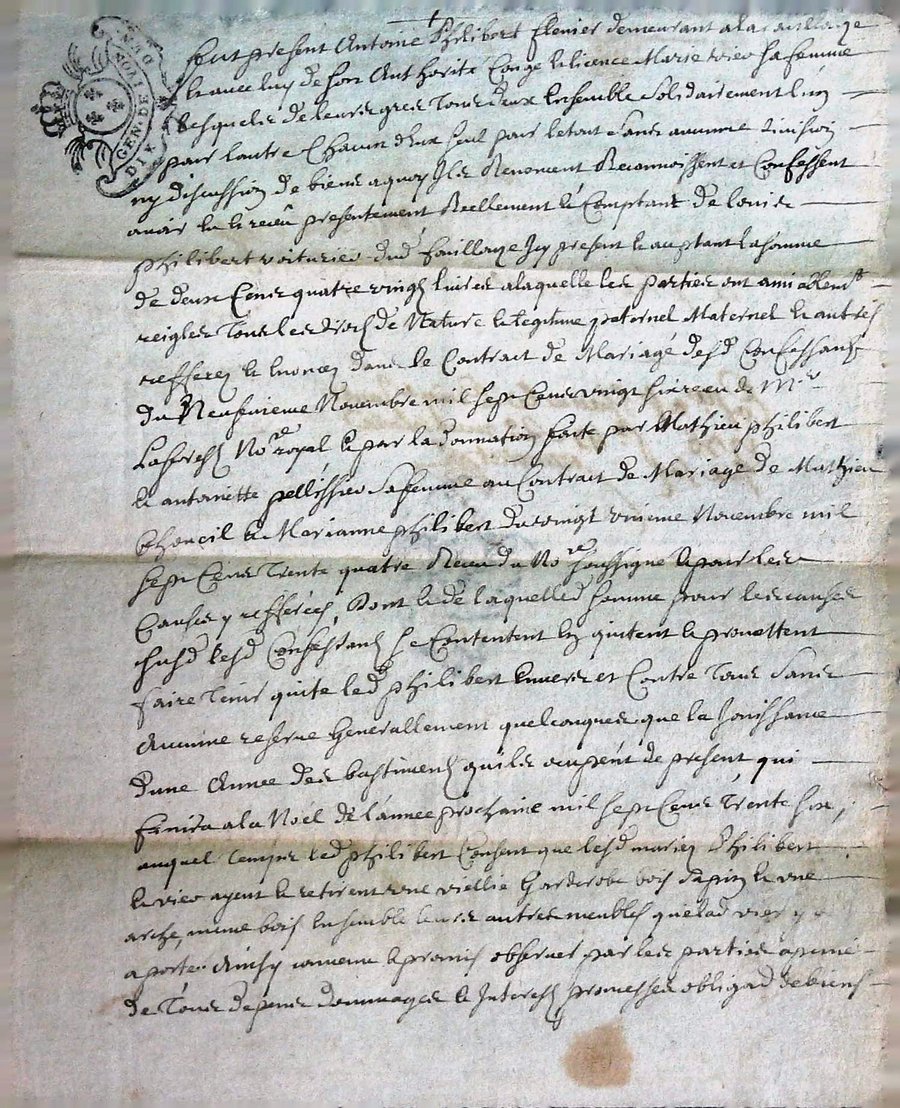 GEN DE
DIX
furt present Antoine Philibert fenier demeurant a la
et avec luy de son Authorité Conge et licence Marie vier sa femme
lesquels de leurs gres Tous deux Ensemble Solidairement l'un
pour lautre Chacun deux seul pour letout sans aucune division
ny discussion de biens a quoy Ils Renoncent Reconnoissent et Confessent
avoir eu et receu presentement Reellement et Comptant de louis
philibert voiturier dud fouillouze Icy present et aceptant la somme
de deux Cens quatre vingts livres a laquelle les parties ont amiablemt
reigles Tous les droits de Nature et legitime paternel Maternel et autres
refferez et enoncez dans le Contrat de Mariage desd Confessants
du Neufvieme Novembre mil sept Cens vingt six receu de Mre
Laforest Nore royal et par la donnation faite par Mathieu philibert
et antoinette pellissier sa femme au Contrat de Mariage de Mathieu
et Marianne philibert du vingt unieme Novembre mil
sept Cens Trente quatre Receu du Nore soussigné et pour les
Causes y refferées, dont et de laquelle d somme pour les causes
susd lesd Confessants se Contentent en quitent et promettent
faire Tenir quite led philibert Envers et Contre Tous Sans
Aucune reserve Generallement quelconques que la Jouissance
dune Annee des bastiments quils ocupent de present qui
finira a la Noel de l'année prochaine mil sept Cens Trente six,
auquel temps led philibert Consent que lesd mariez Philibert
et vier ayent et retirent une vieille Garderobe bois sapin et une
arche, meme bois Ensemble leurs autres meubles que lad vier y a
aporter Ainsy convenu et promis observer par les parties a peine
de Tous depens dommages et Interests promesses obligaõ de biens